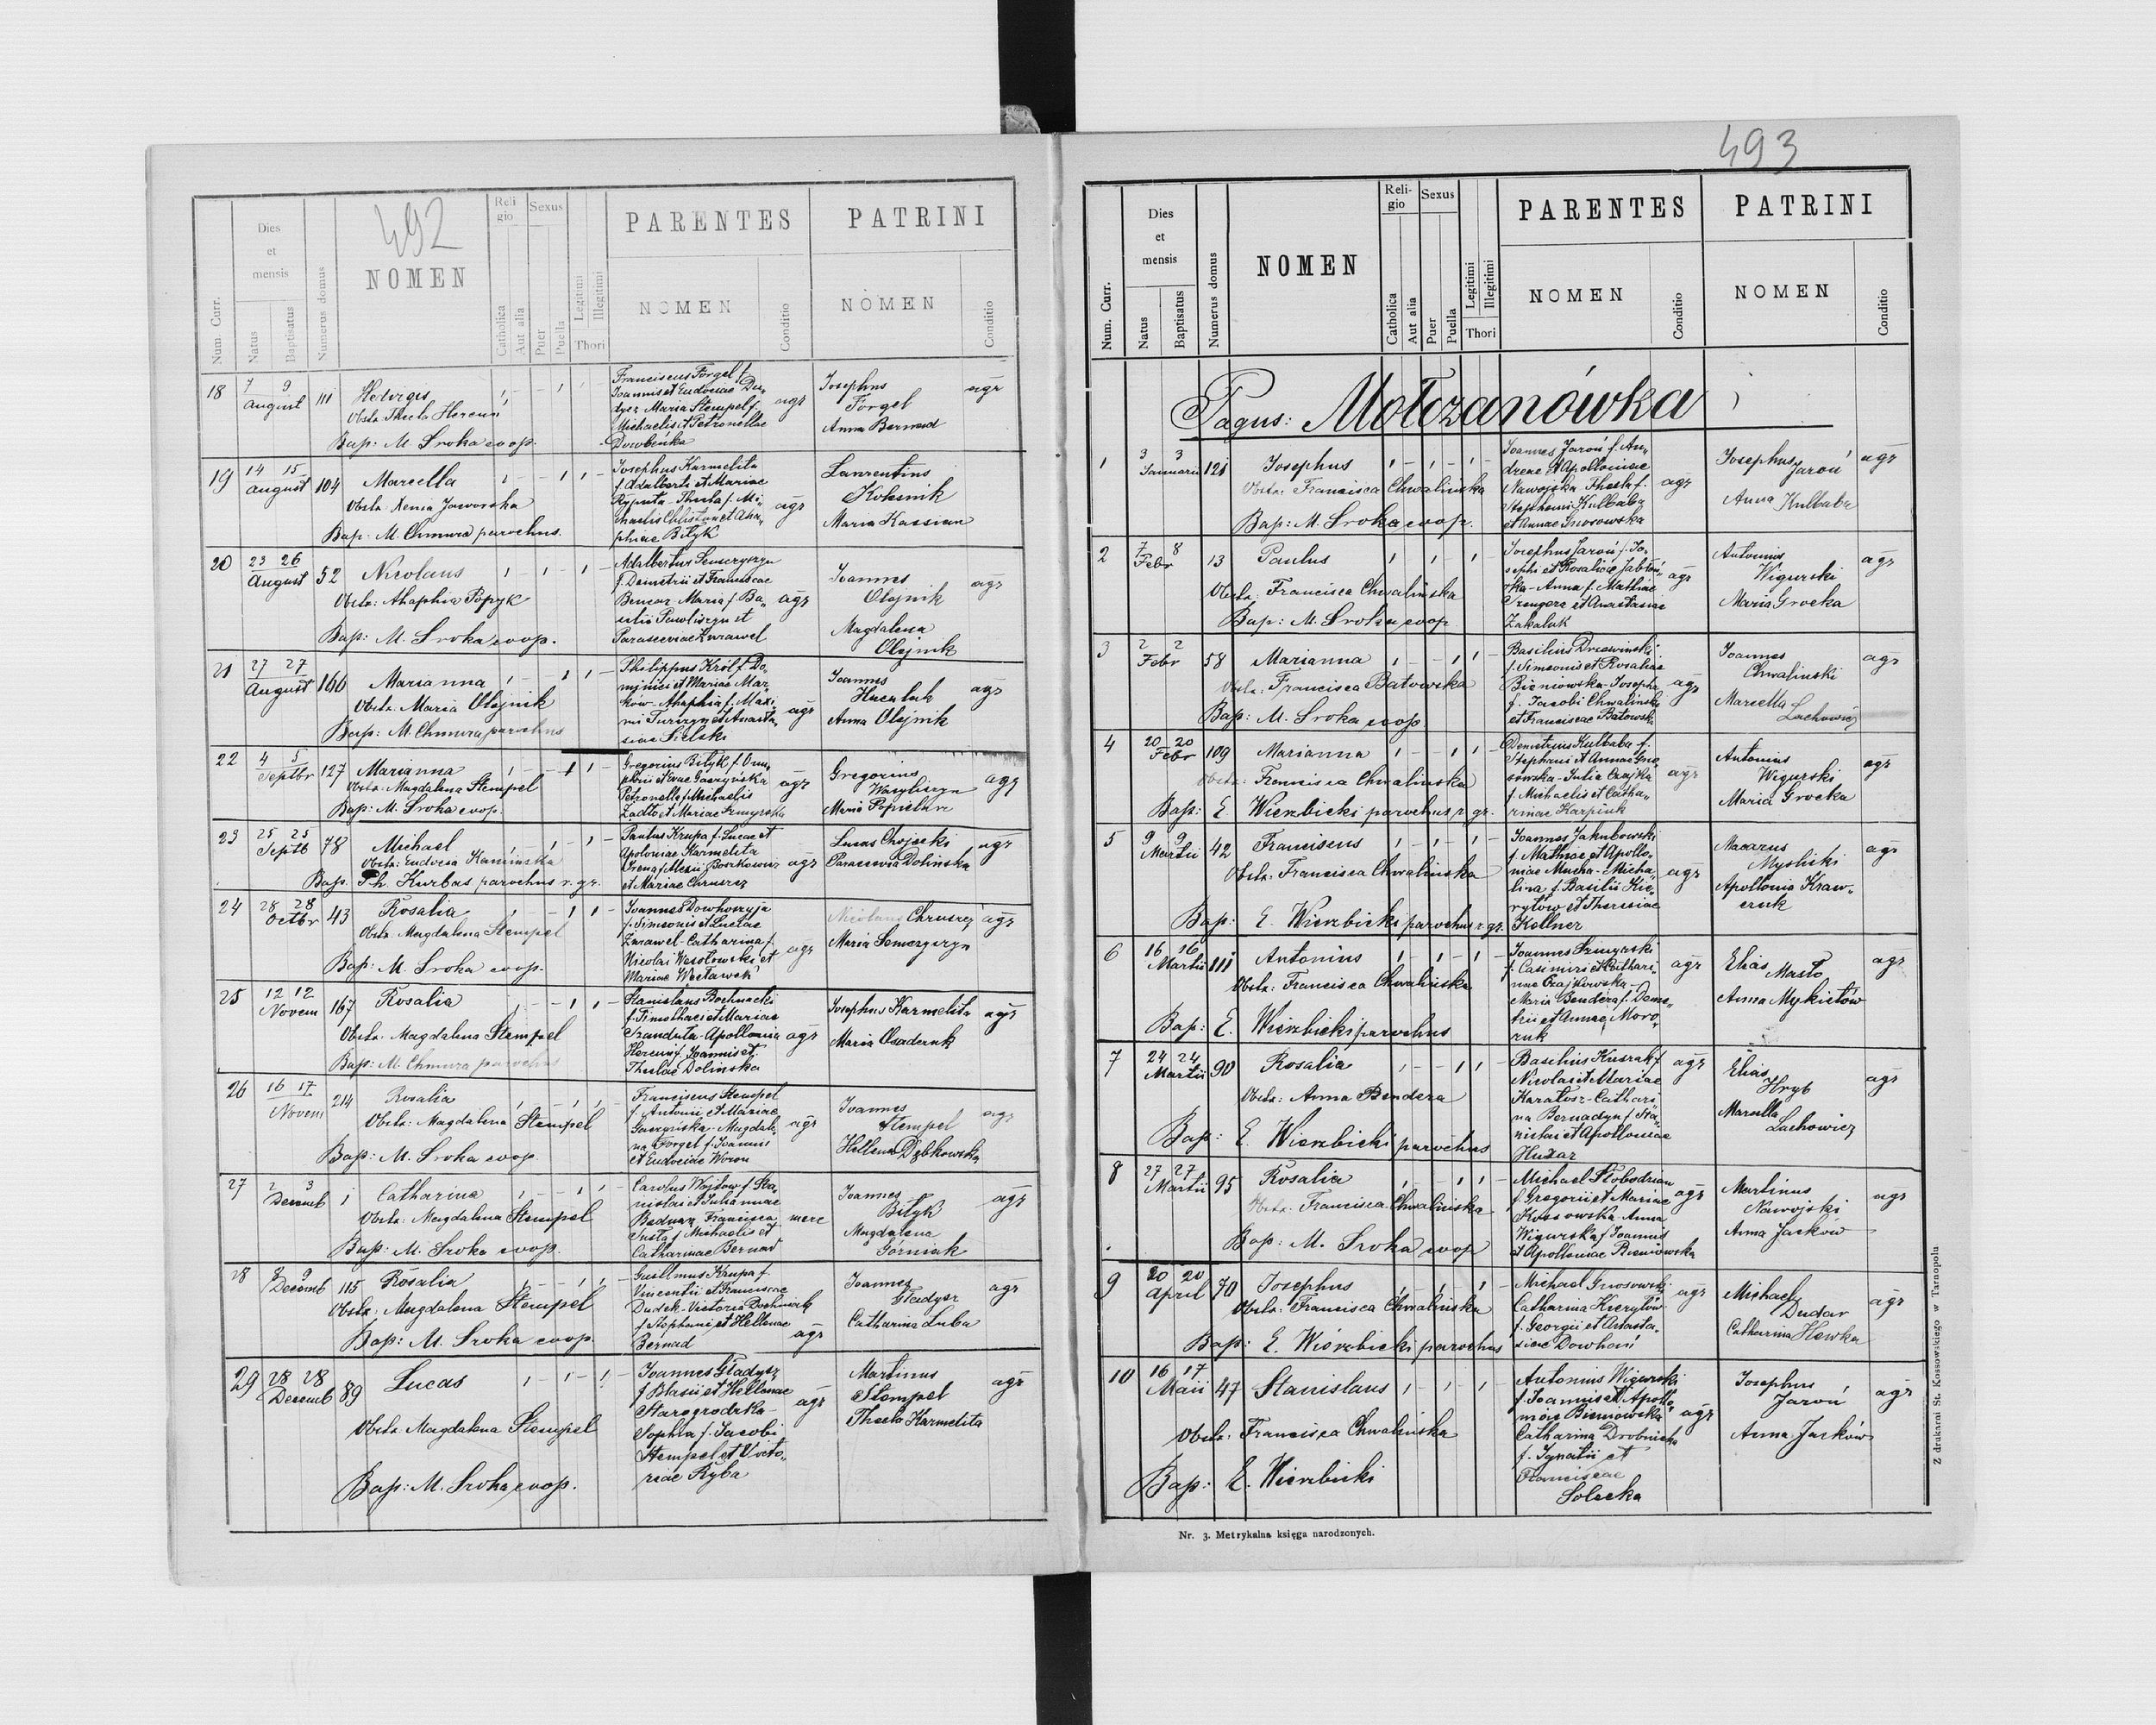 492
Num. Curr.
Dies et mensis
Natus
Baptisatus
Numerus domus
NOMEN
Religio
Catholica
Aut alia
Sexus
Puer
Puella
Legitimi
Illegitimi
Thori
PARENTES
NOMEN
Conditio
PATRINI
NOMEN
Conditio
18 7 9 August 111 Hedvigis
Obstr. Thecla Hereun
Bap: M. Sroka coop.
Franciscus Forgel f.
Joannis et Eudociae Du„
dycz Maria Stempel f.
Michaelis et Petronellae
Dowbenka
agr
Josephus
Forgel
Anna Bernad
agr
19 14 15 August 104 Marcella
Obstr. Xenia Jaworska
Bap. M. Chmura parochus.
Josephus Karmelita
f. Adalberti et Mariae
Ryputa - Thecla f. Mi„
chaelis et Aha„
phiae Bilyk
agr
Laurentius
Kolisnik
Maria Kassian
20 23 26 August 52 Nicolaus
Obstr: Ahaphia Popyk
Bap: M. Sroka coop.
Adalbertus Semczyszyn
f. Demetrii et Franciscae
Bencar Maria f. Ba„
silii Pawliszyn et
Parasceviae Żurawel
agr
Joannes
Olejnik
Magdalena
Olejnik
agr
21 27 27 August 166 Marianna
Obstr. Maria Olejnik
Bap: M. Chmura parochus
Philippus Król f. Do„
minici et Mariae Mar„
ków - Ahaphia f. Maxi„
mi et Anasta„
siae Sielski
agr
Joannes
Huculak
Anna Olejnik
agr
22 4 5 Septbr 127 Marianna
Obstr. Magdalena Stempel
Bap: M. Sroka coop.
Gregorius Bilyk f. Onu„
phrii et Evae Gaczyńska
Petronella f. Michaelis
Zadło et Mariae Szmyrska
agr
Gregorius
Wasyliszyn
Maria Popielur
agr
23 25 25 Septb 78 Michael
Obstr: Eudocia Kaminska
Bap. Th. Kurbas parochus r. gr.
Paulus Krupa f. Lucae et
Apoloniae Karmelita
Irena f. Alexii Boszkowicz
et Mariae Chruszcz
agr
Lucas Chojecki
Parascevia Dolińska
agr
24 28 28 Octbr 43 Rosalia
Obstr. Magdalena Stempel
Bap: M. Sroka coop.
Joannes Dowhoszyja
f. Simeonis et Luciae
Żurawel - Catharina f.
Nicolai Wesołowski et
Mariae Wecławek
agr
Nicolaus Chruszcz
Maria Semczyszyn
agr
25 12 12 Novem 167 Rosalia
Obstr. Magdalena Stempel
Bap: M. Chmura parochus
Stanislaus Bochnacki
f. Timothaei et Mariae
Trandula - Apollonia
Hereun f. Joannis et
Theclae Dolinska
agr
Josephus Karmelita
Maria Osadczuk
agr
26 16 17 Novem 214 Rosalia
Obstr. Magdalena Stempel
Bap: M. Sroka coop
Franciscus Stempel
f. Antonii et Mariae
Gaczyńska - Magdale„
na Forgel f. Joannis
et Eudociae Woron
agr
Joannes
Stempel
Hellena Dąbkowska
agr
27 2 3 Decemb 1 Catharina
Obstr. Magdalena Stempel
Bap: M. Sroka coop.
Carolus Wojtow f. Sta„
nislai et Juliannae
Bednarz Francisca
Tusta f. Michaelis et
Catharinae Bernad
merc
Joannes
Bilyk
Magdalena
Górniak
agr
28 8 9 Decemb 115 Rosalia
Obstr. Magdalena Stempel
Bap: M. Sroka coop.
Guillmus Krupa f.
Vincentii et Franciscae
Dudek - Victoria
f. Stephani et Hellenae
Bernad
agr
Joannes
Gładysz
Catharina Luba
agr
29 28 28 Decemb 89 Lucas
Obstr. Magdalena Stempel
Bap: M. Sroka coop.
Joannes Gładysz
f. Blasii et Hellenae
Starogrodzka -
Sophia f. Jacobi
Stempel et Victo„
riae Ryba
agr
Martinus
Stempel
Thecla Karmelita
agr
493
Num. Curr.
Dies et mensis
Natus
Baptisatus
Numerus domus
NOMEN
Religio
Catholica
Aut alia
Sexus
Puer
Puella
Legitimi
Illegitimi
Thori
PARENTES
NOMEN
Conditio
PATRINI
NOMEN
Conditio
Pagus: Mołczanówka
1 3 3 Januarii 121 Josephus
Obstr: Francisca Chwalińska
Bap: M. Sroka coop.
Joannes Jaroń f. An„
dreae et Apolloniae
Nawojska - Thecla f.
Stephani Kulbaba
et Annae Gnosowska
agr
Josephus Jaroń
Anna Kulbaba
agr
2 7 8 Febr 13 Paulus
Obstr. Francisca Chwalinska
Bap: M. Sroka coop
Josephus Jaroń f. Jo„
sephi et Rosaliae Jabłoń„
ska - Anna f. Mathiae
et Anastasiae
Zakaluk
agr
Antonius
Wigurski
Maria Grocka
agr
3 2 2 Febr 58 Marianna
Obstr. Francisca Batowska
Bap: M. Sroka coop
Basilius
f. Simeonis et Rosaliae
Bieniowska - Josepha
f. Jacobi Chwalinski
et Franciscae Batowska
agr
Joannes
Chwalinski
Marcella
Lachowicz
agr
4 20 20 Febr 109 Marianna
Obstr: Francisca Chwalinska
Bap: E. Wierzbicki parochus r. gr.
Demetrius Kulbaba f.
Stephani et Annae Gno„
sowska - Julia Czajka
f. Michaelis et Catha„
rinae Karpiuk
agr
Antonius
Wigurski
Maria Grocka
agr
5 9 9 Martii 42 Franciscus
Obstr. Francisca Chwalinska
Bap: E. Wierzbicki parochus r. gr.
Joannes Jakubowski
f. Mathiae et Apollo„
niae Mucha - Micha„
lina f. Basilii Kie„
rytow et Theresiae
Kellner
agr
Macarus
Mysliski
Apollonia Kraw„
czuk
agr
6 16 16 Martii 111 Antonius
Obstr. Francisca Chwalińska
Bap: E. Wierzbicki parochus
Joannes Szmyrski
f. Casimiri et Cathari„
nae Czajkowska -
Maria Bendera f. Deme„
trii et Annae Moro„
zuk
agr
Elias
Masło
Anna Mykietów
agr
7 24 24 Martii 90 Rosalia
Obstr: Anna Bendera
Bap: E. Wierzbicki parochus
Basilius Kuszak f.
Nicolai et Mariae
Karałosz - Cathari„
na Bernadyn f. Sta„
nislai et Apolloniae
Huzar
agr
Elias
Hryb
Marcella
Lachowicz
agr
8 27 27 Martii 95 Rosalia
Obstr. Francisca Chwalińska
Bap: M. Sroka coop
Michael Słobodzian
f. Gregorii et Mariae
Kossowska - Anna
Wigurska f. Joannis
et Apolloniae Bieniowska
agr
Martinus
Nawojski
Anna Jasków
agr
9 20 20 April 70 Josephus
Obstr. Francisca Chwalińska
Bap: E. Wierzbicki parochus
Michael Gnosowski
Catharina Kierytów
f. Georgii et Anasta„
siae Dowhań
agr
Michael
Dudar
Catharina Hewka
agr
10 16 17 Maii 47 Stanislaus
Obstr. Francisca Chwalinska
Bap: E. Wierzbicki
Antonius Wigurski
f. Joannis et Apollo„
niae Bieniowska
Catharina Drobnicka
f. Ignatii et
Franciscae
Solecka
agr
Josephus
Jaroń
Anna Jasków
agr
Nr. 3. Metrykalna księga narodzonych.
Z drukarni St. Kossowskiego w Tarnopolu